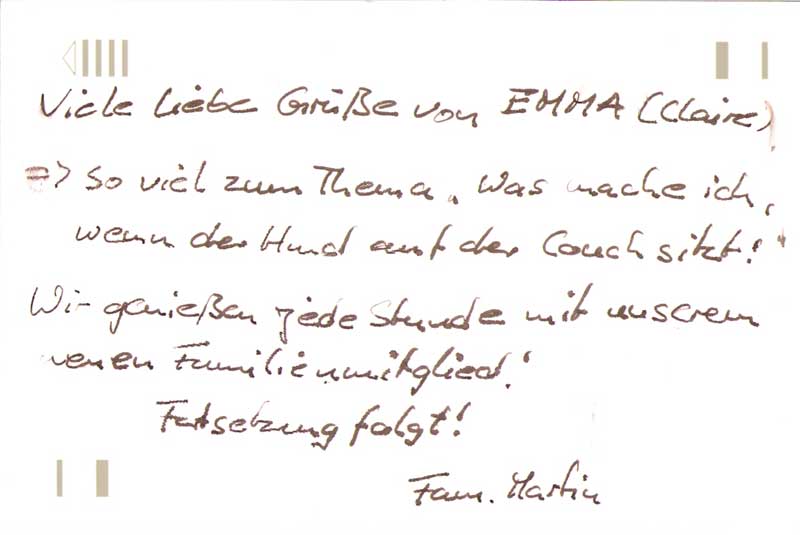 Viele liebe Grüße von EMMA (Claire)
=> So viel zum Thema „Was mache ich,
wenn der Hund auf der Couch sitzt!"
Wir genießen jede Stunde mit unserem
neuen Familienmitglied!
Fortsetzung folgt!
Fam. Martin